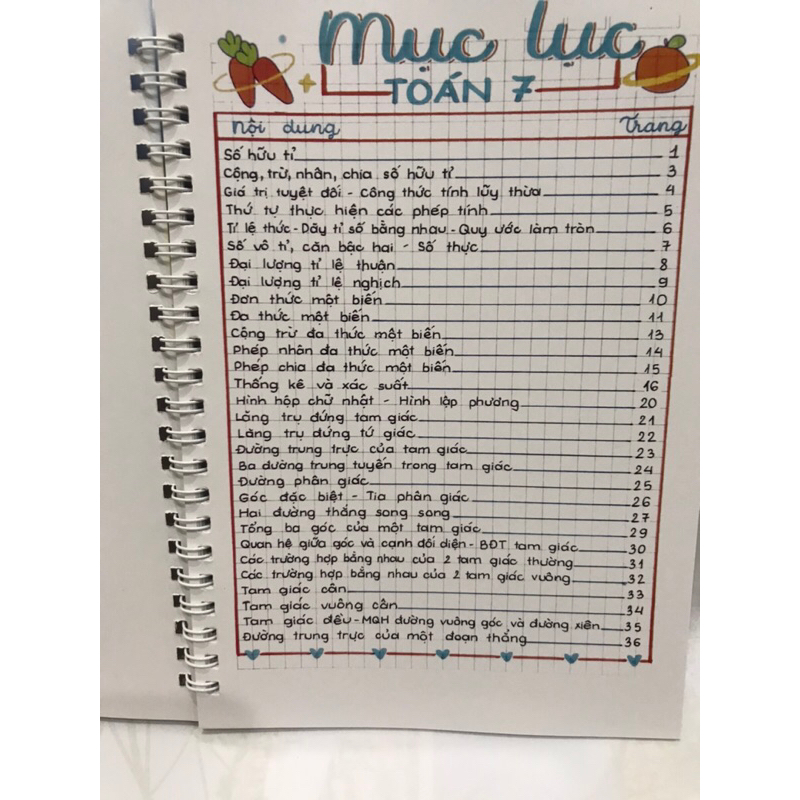 Mục lục
TOÁN 7
Nội dung Trang
Số hữu tỉ 1
Cộng, trừ, nhân, chia số hữu tỉ 3
Giá trị tuyệt đối - Công thức tính lũy thừa 4
Thứ tự thực hiện các phép tính 5
Tỉ lệ thức - Dãy tỉ số bằng nhau - Quy ước làm tròn 6
Số vô tỉ, căn bậc hai - Số thực 7
Đại lượng tỉ lệ thuận 8
Đại lượng tỉ lệ nghịch 9
Đơn thức một biến 10
Đa thức một biến 11
Cộng trừ đa thức một biến 13
Phép nhân đa thức một biến 14
Phép chia đa thức một biến 15
Thống kê và xác suất 16
Hình hộp chữ nhật - Hình lập phương 20
Lăng trụ đứng tam giác 21
Lăng trụ đứng tứ giác 22
Đường trung trực của tam giác 23
Ba đường trung tuyến trong tam giác 24
Đường phân giác 25
Góc đặc biệt - Tia phân giác 26
Hai đường thẳng song song 27
Tổng ba góc của một tam giác 29
Quan hệ giữa góc và cạnh đối diện - BĐT tam giác 30
Các trường hợp bằng nhau của 2 tam giác thường 31
Các trường hợp bằng nhau của 2 tam giác vuông 32
Tam giác cân 33
Tam giác vuông cân 34
Tam giác đều - MQH đường vuông góc và đường xiên 35
Đường trung trực của một đoạn thẳng 36